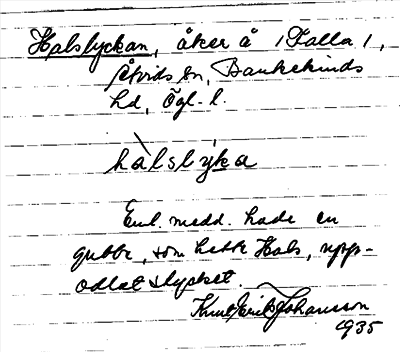 Halslyckan, åker å /Falla/,
Åtvids sn, Bankekinds
hd, Ögl. l.
hàlslỳka
Enl. medd. hade en
gubbe, som hette Hals, upp-
odlat stycket.
Knut Erik Johansson
1935